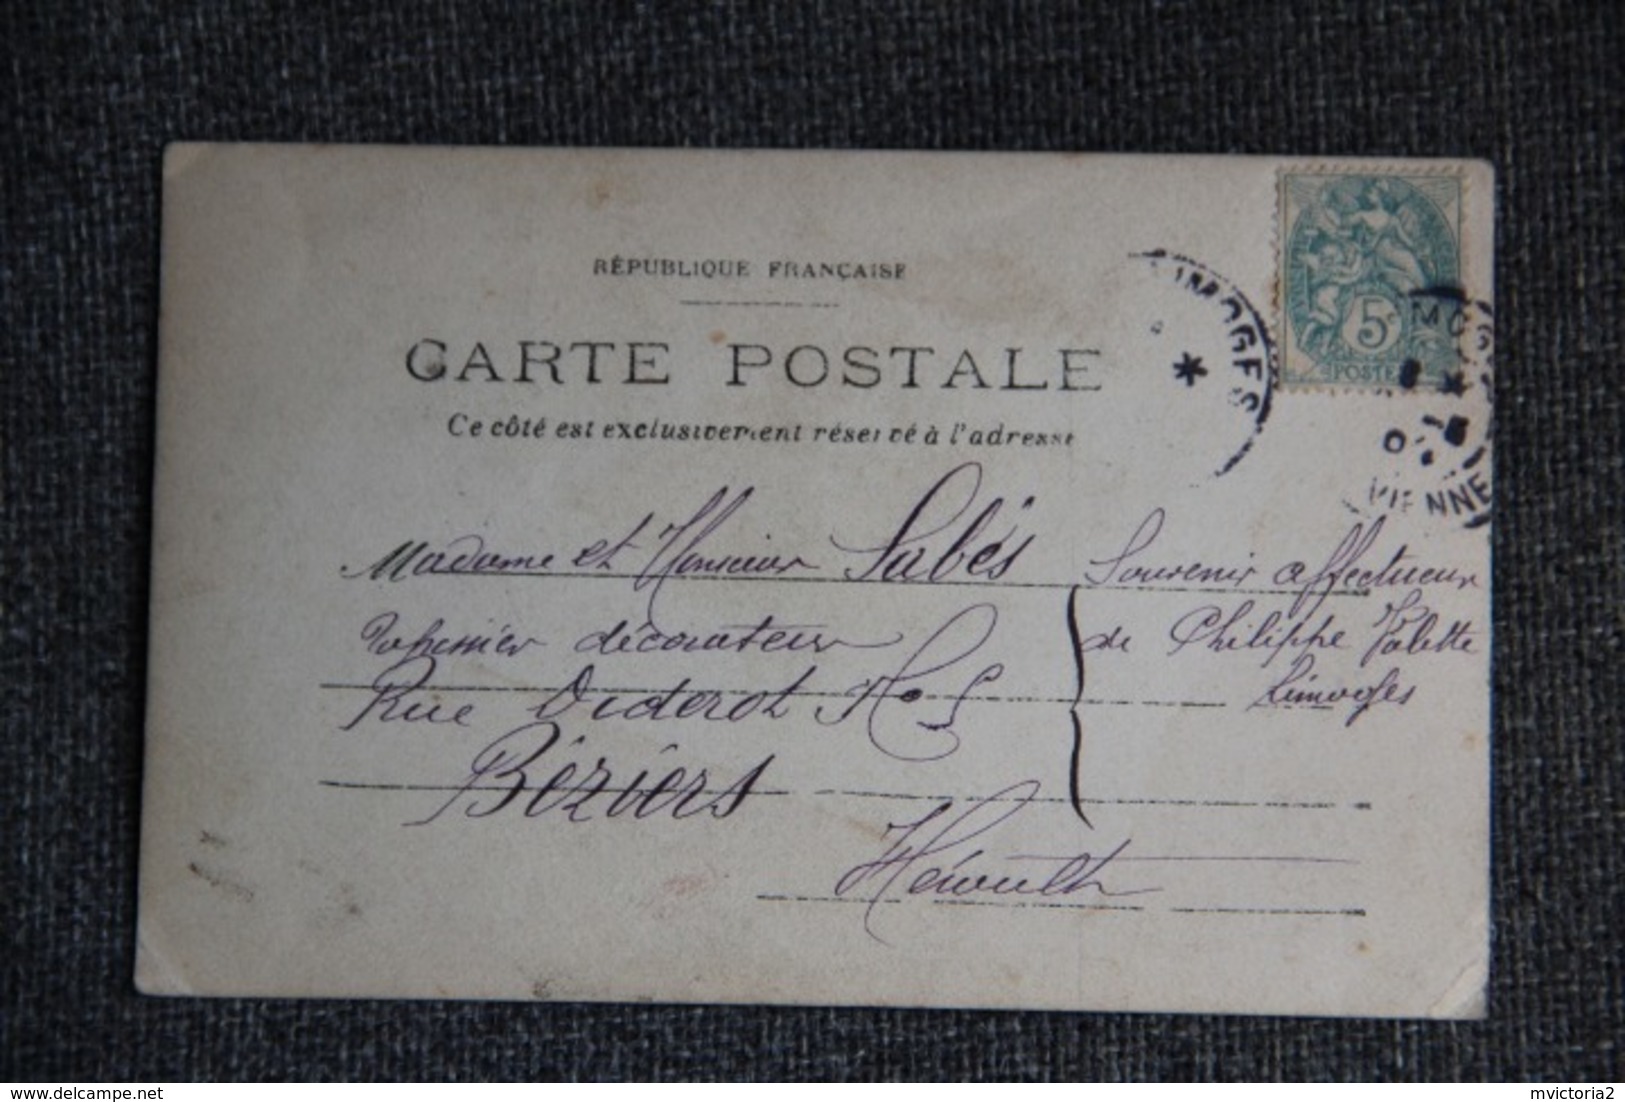 RÉPUBLIQUE FRANÇAISE
CARTE POSTALE
Ce côté est exclusivement réservé à l'adresse
LIMOGES
5c
POSTE
VIENNE
Madame et Monsieur Sabés
décorateur
Rue Diderot No 9
Béziers
Hérault
Souvenir affectueux
de Philippe Valette
Limoges
www.delcampe.net
mvictoria2